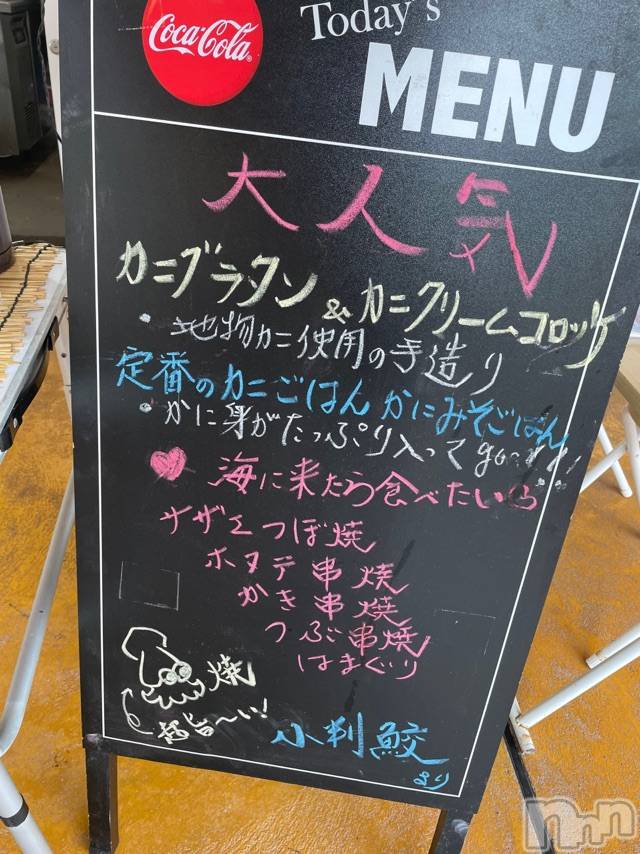 Coca-Cola
Today's
MENU
大人気
カニグラタン & カニクリームコロッケ
・地物カニ使用の手造り
定番のカニごはん かにみそごはん
・かに身がたっぷり入って good!!
♥海に来たら食べたい
サザエつぼ焼
ホタテ串焼
かき串焼
つぶ串焼
はまぐり
焼
旨〜い!
小判鮫
より
nnn